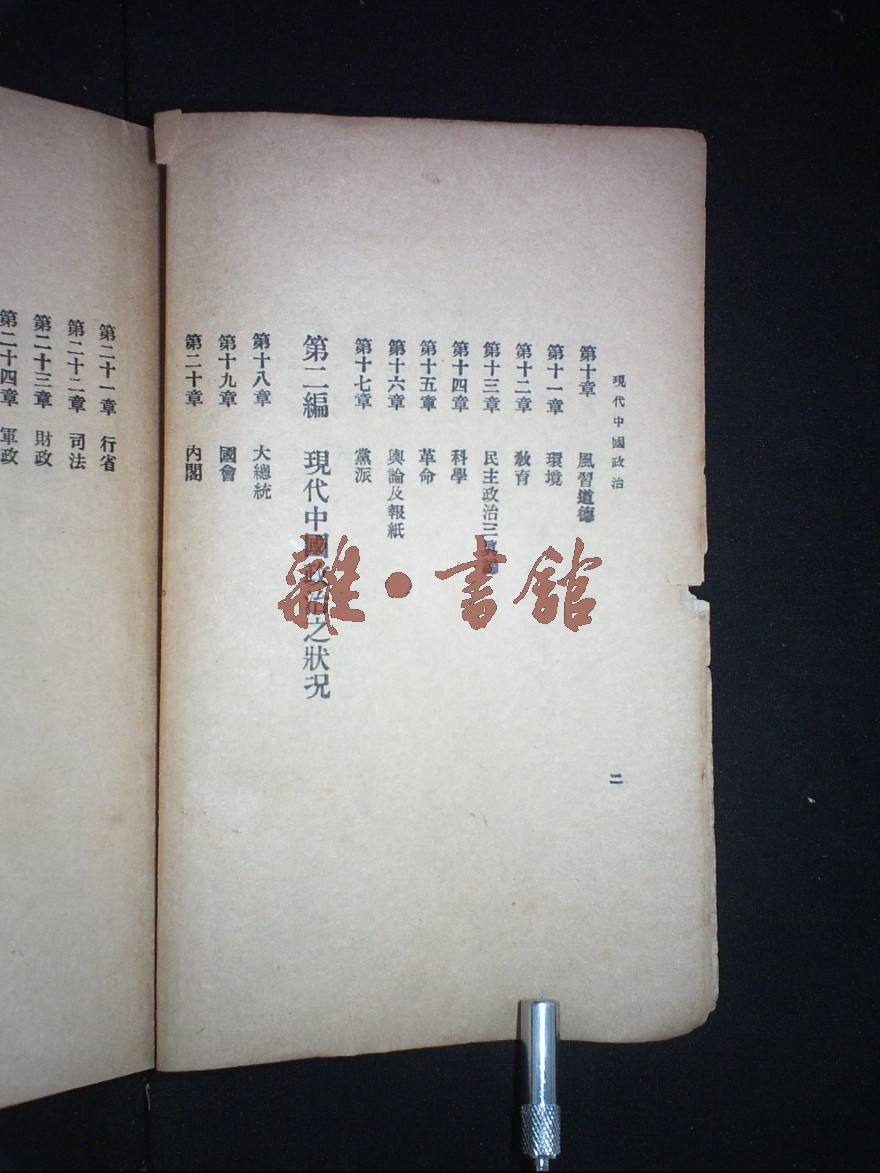 現代中國政治
二
第十章 風習道德
第十一章 環境
第十二章 教育
第十三章 民主政治三
第十四章 科學
第十五章 革命
第十六章 輿論及報紙
第十七章 黨派
第二編 現代中國政治之狀況
第十八章 大總統
第十九章 國會
第二十章 內閣
第二十一章 行省
第二十二章 司法
第二十三章 財政
第二十四章 軍政
雜·書館